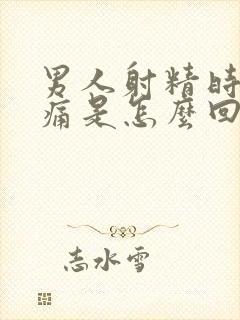 男人射精時
痛是怎麼回
志水雪